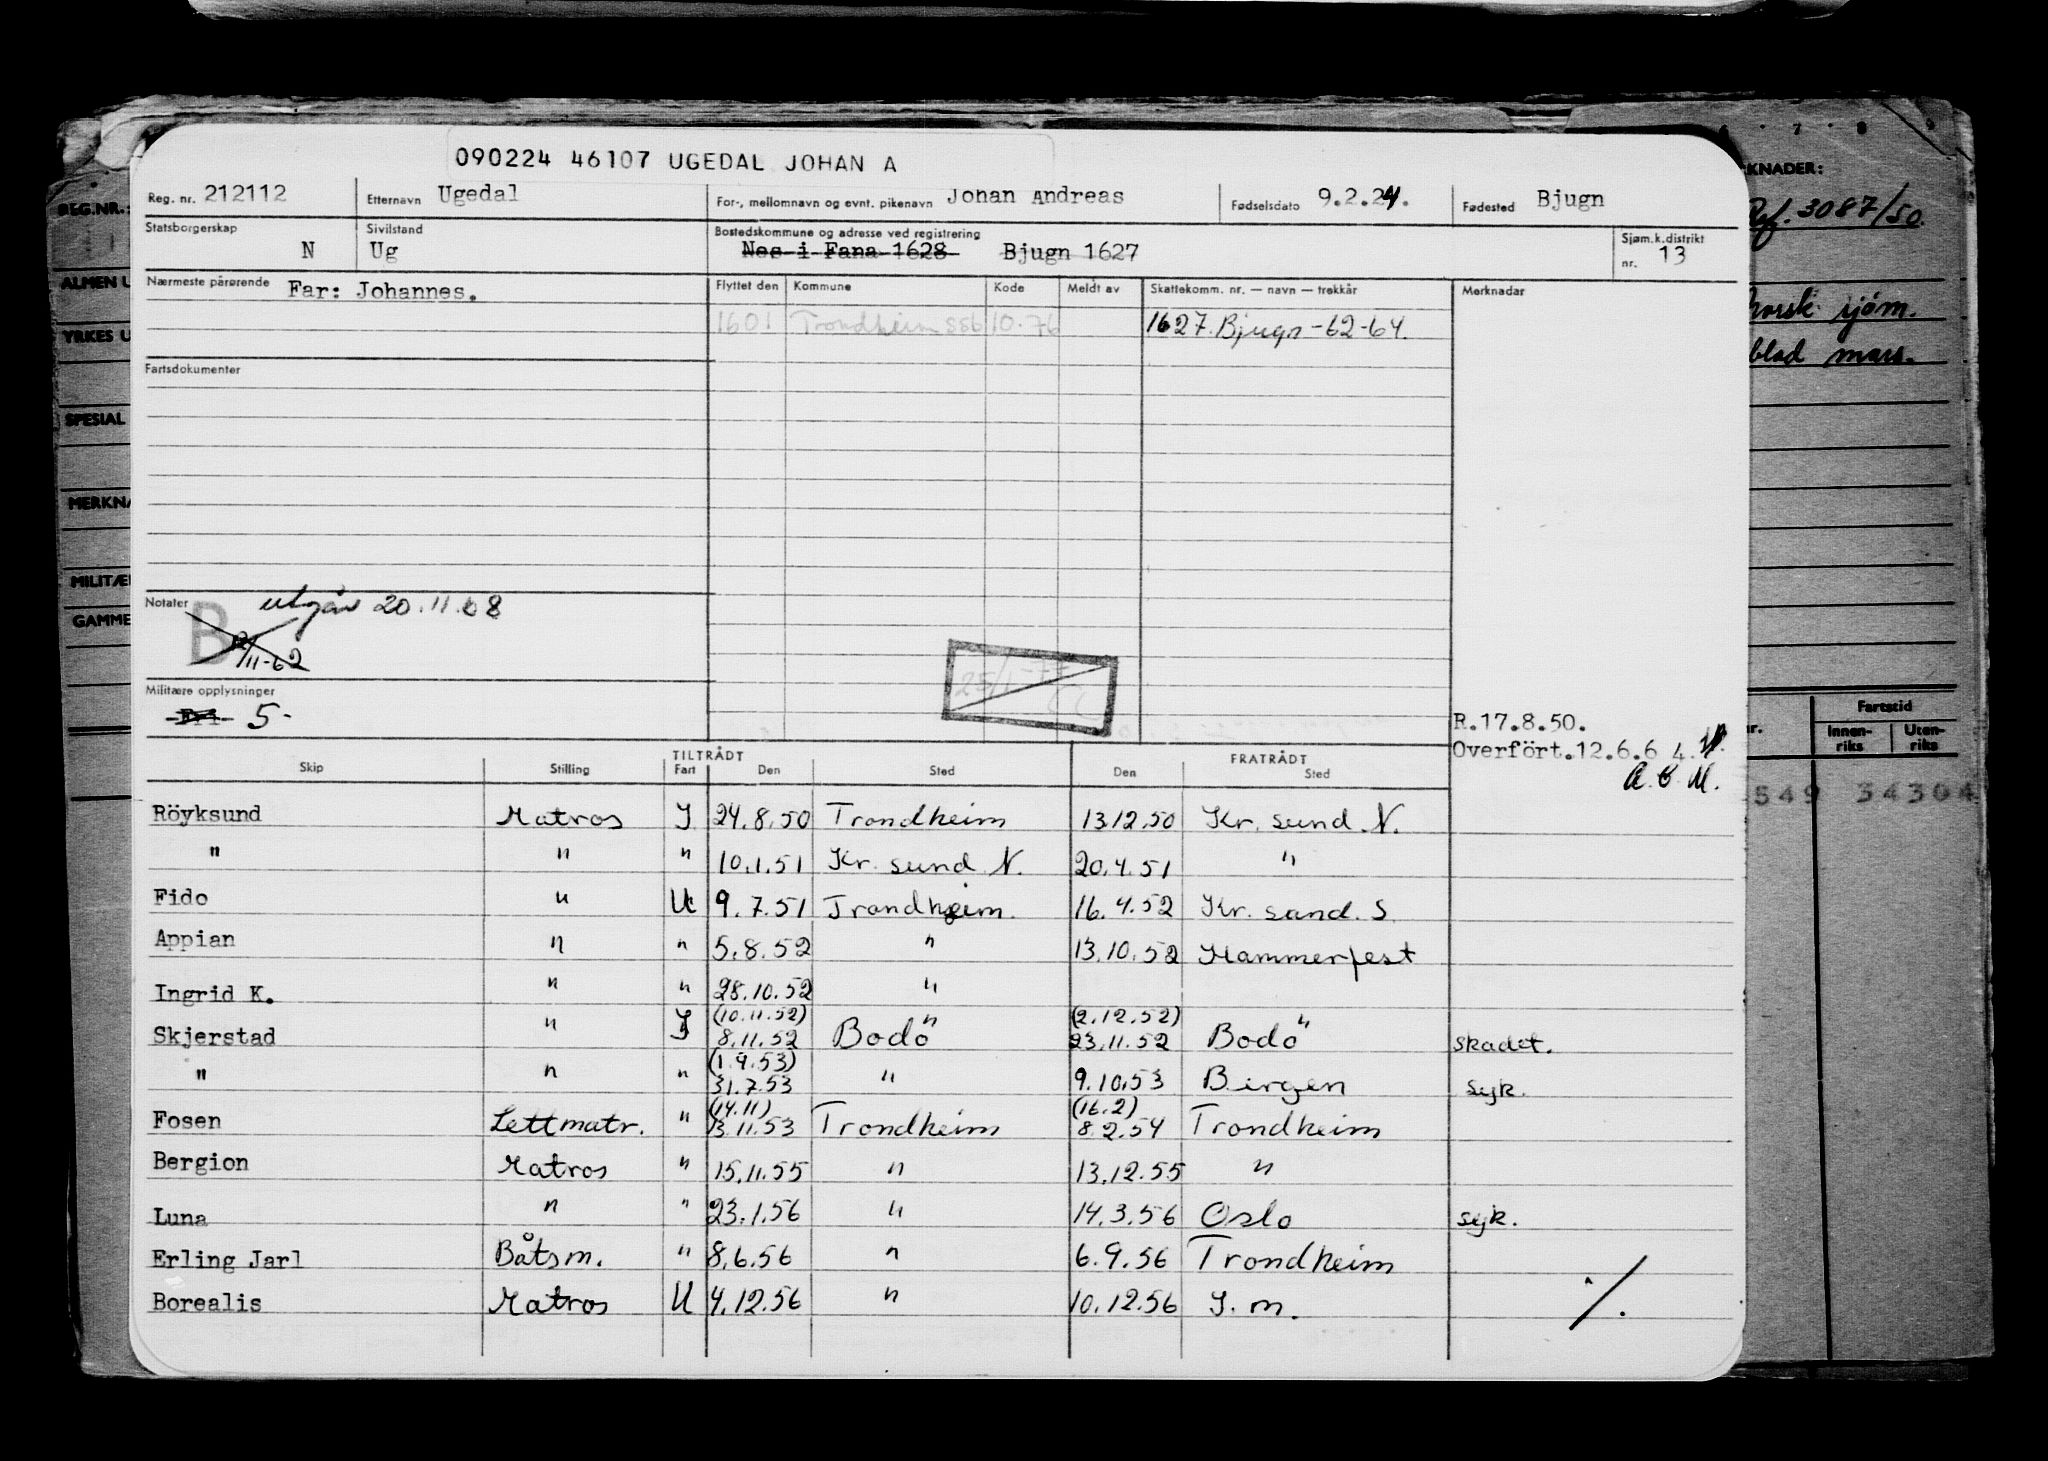 090224 46107 UGEDAL JOHAN A
Reg. nr. 212112 Etternavn Ugedal For-, mellomnavn og evnt. pikenavn Johan Andreas Fødselsdato 9.2.24. Fødested Bjugn
Statsborgerskap N Sivilstand Ug Bostedskommune og adresse ved registrering Nes i Fana 1628 Bjugn 1627 Sjøm.k.distrikt nr. 13
Nærmeste pårørende Far: Johannes. Flyttet den Kommune Kode Meldt av Skattekomm. nr. — navn — trekkår Merknadar
1601 Trondheim SSB 10.76 1627 Bjugn-62-64.
Fartsdokumenter
Notater B utgår 20.11.68
/11-62
Militære opplysninger
Fri 5-
25/1-77
R.17.8.50.
Overfört.12.6.64.
TILTRÅDT FRATRÅDT
Skip Stilling Fart Den Sted Den Sted
Röyksund Matros I 24.8.50 Trondheim 13.12.50 Kr. sund. N.
" " " 10.1.51 Kr. sund N. 20.4.51 "
Fido " U 9.7.51 Trondheim. 16.4.52 Kr. sand. S
Appian " " 5.8.52 " 13.10.52 Hammerfest
Ingrid K. " " 28.10.52 "
(10.11.52) " (2.12.52) "
Skjerstad " I 8.11.52 Bodö 23.11.52 Bodö skadet.
(1.9.53)
" " " 31.7.53 " 9.10.53 Bergen syk.
(14.11) (16.2)
Fosen Lettmatr. " 13.11.53 Trondheim 8.2.54 Trondheim
Bergion Matros " 15.11.55 " 13.12.55 "
Luna " " 23.1.56 " 14.3.56 Oslo syk.
Erling Jarl Båtsm. " 8.6.56 " 6.9.56 Trondheim
Borealis Matros U 4.12.56 " 10.12.56 I. m. ./.
REG.NR.:
ALMEN U
YRKES U
SPESIAL
MERKNA
MILITÆ
GAMME
7 8 9
KNADER:
Ref. 3087/50.
norsk sjöm.
blad mars.
Fartstid
nr. Innen-riks Uten-riks
549 34304